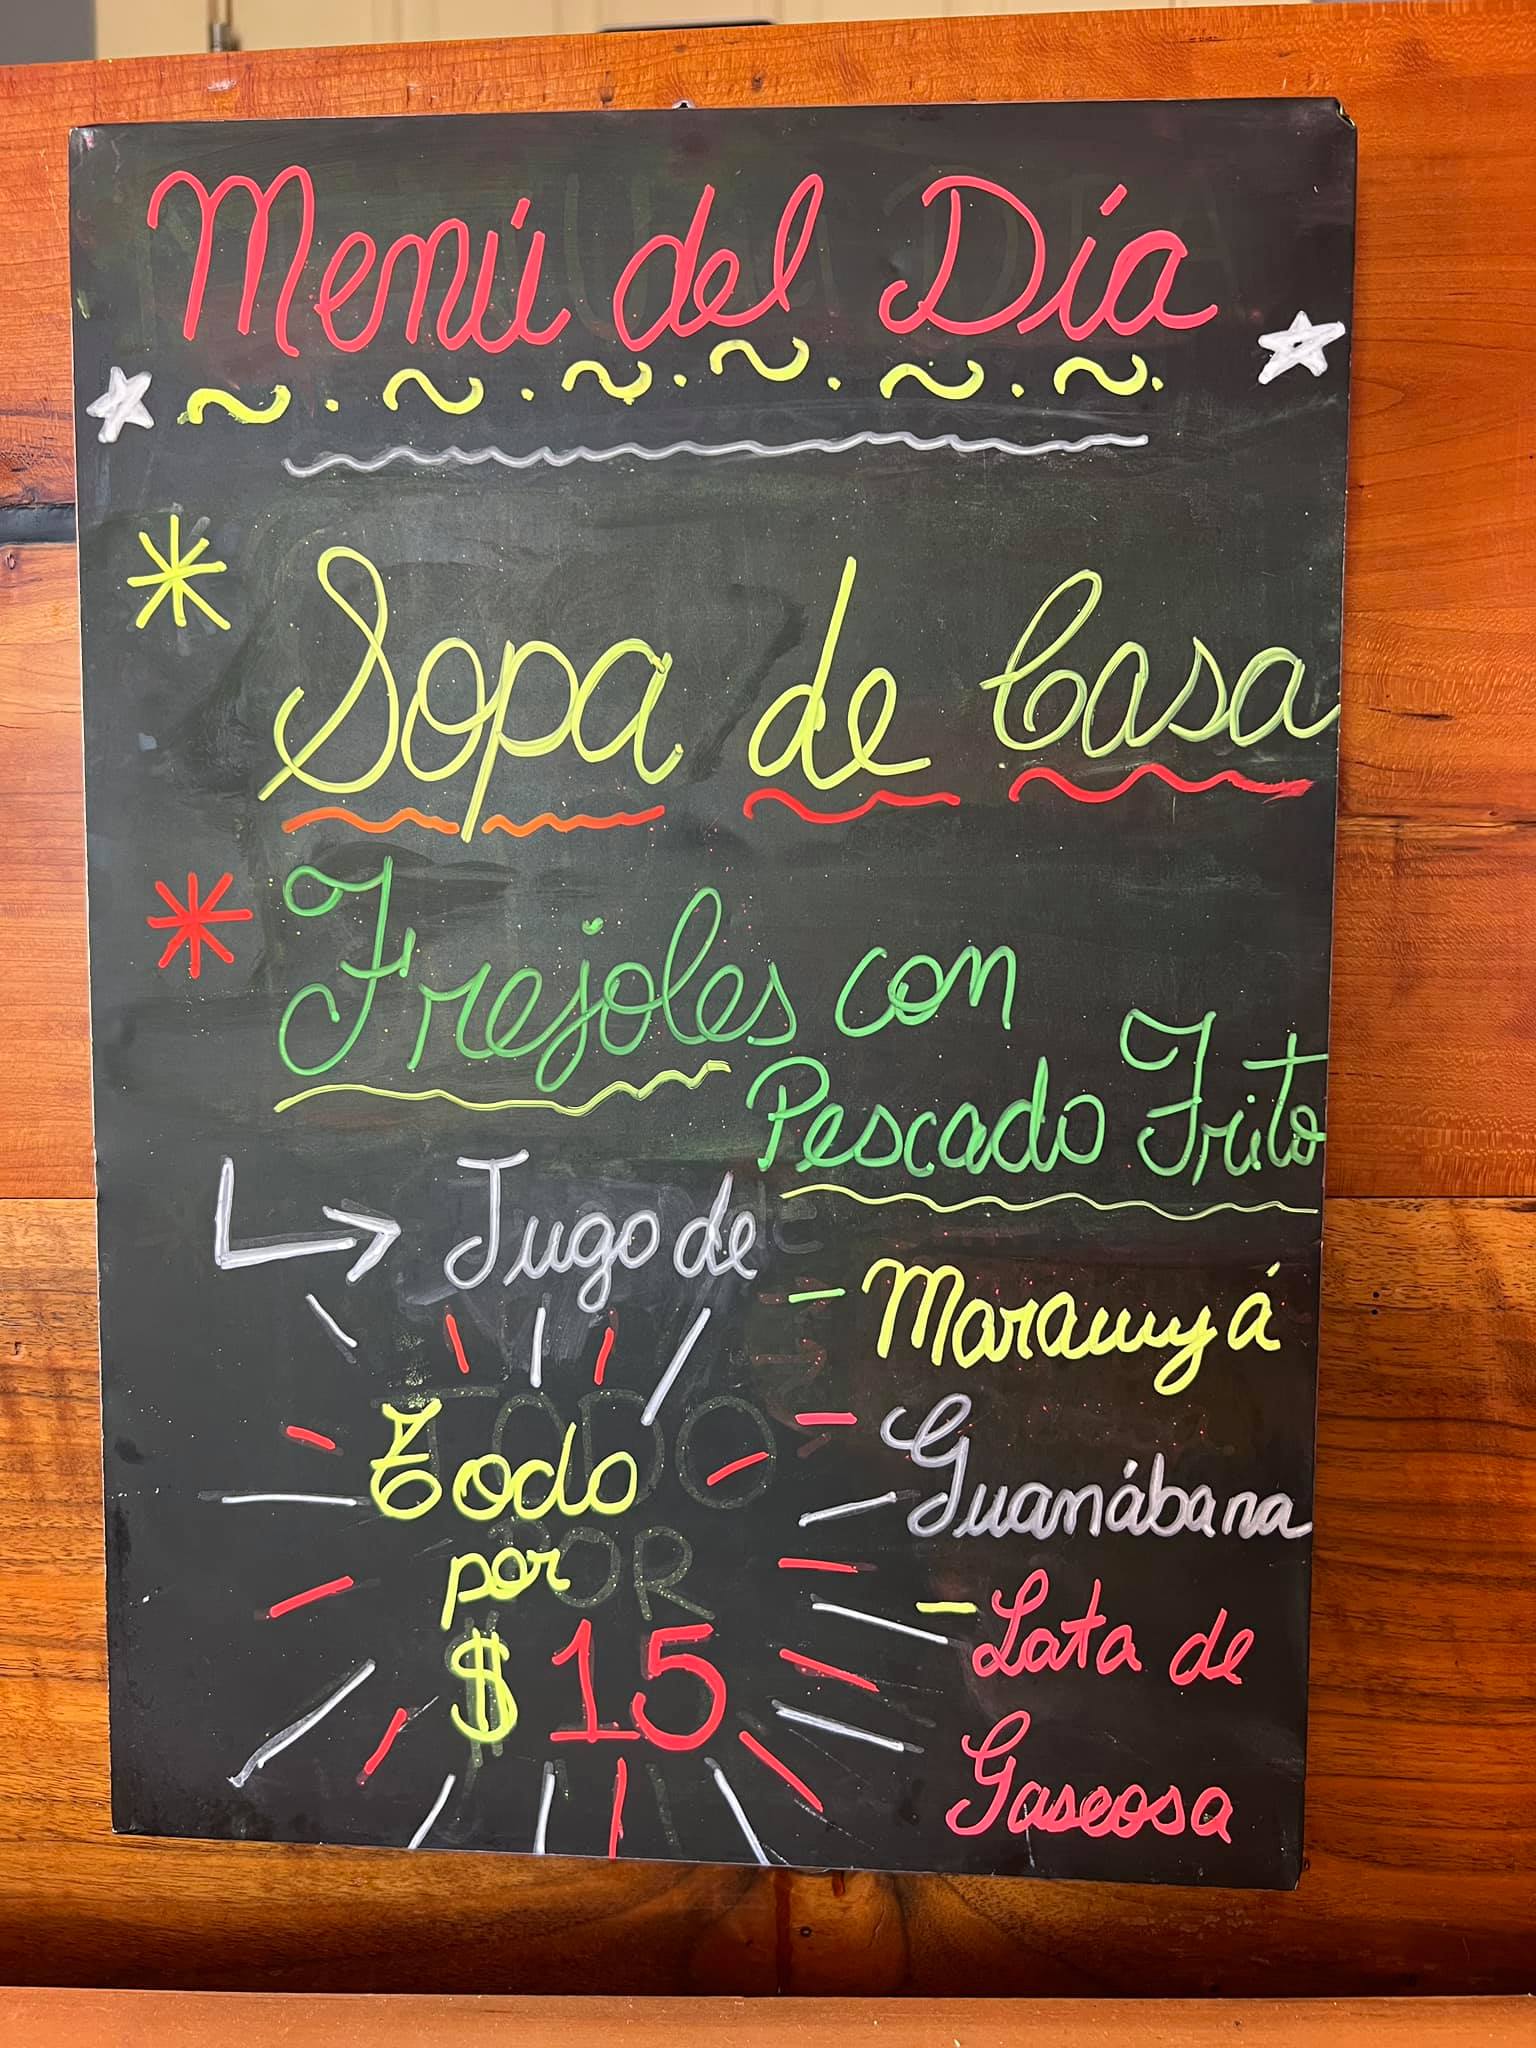 Menú del Día
Sopa de Casa
Frejoles con
Pescado Frito
Jugo de
- Maracuyá
- Guanábana
- Lata de
Gaseosa
Todo
por
$ 15